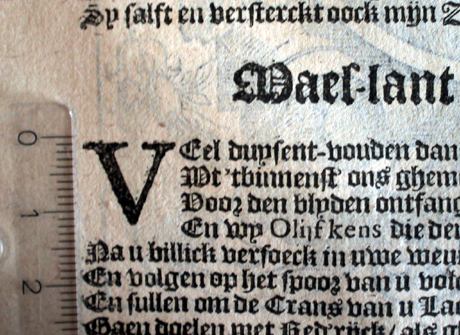 Sy salft en versterckt oock mijn
Maes-lant
VEel duysent-vouden dan
Wt 'tbinnenst' ons ghem
Door den blyden ontfang
En wy Olijfkens die de
Na u billick versoeck in uwe weu
En volgen op het spoor van u vol
En sullen om de Crans van u La
Gaen doelen met Red'rijck als
0
1
2